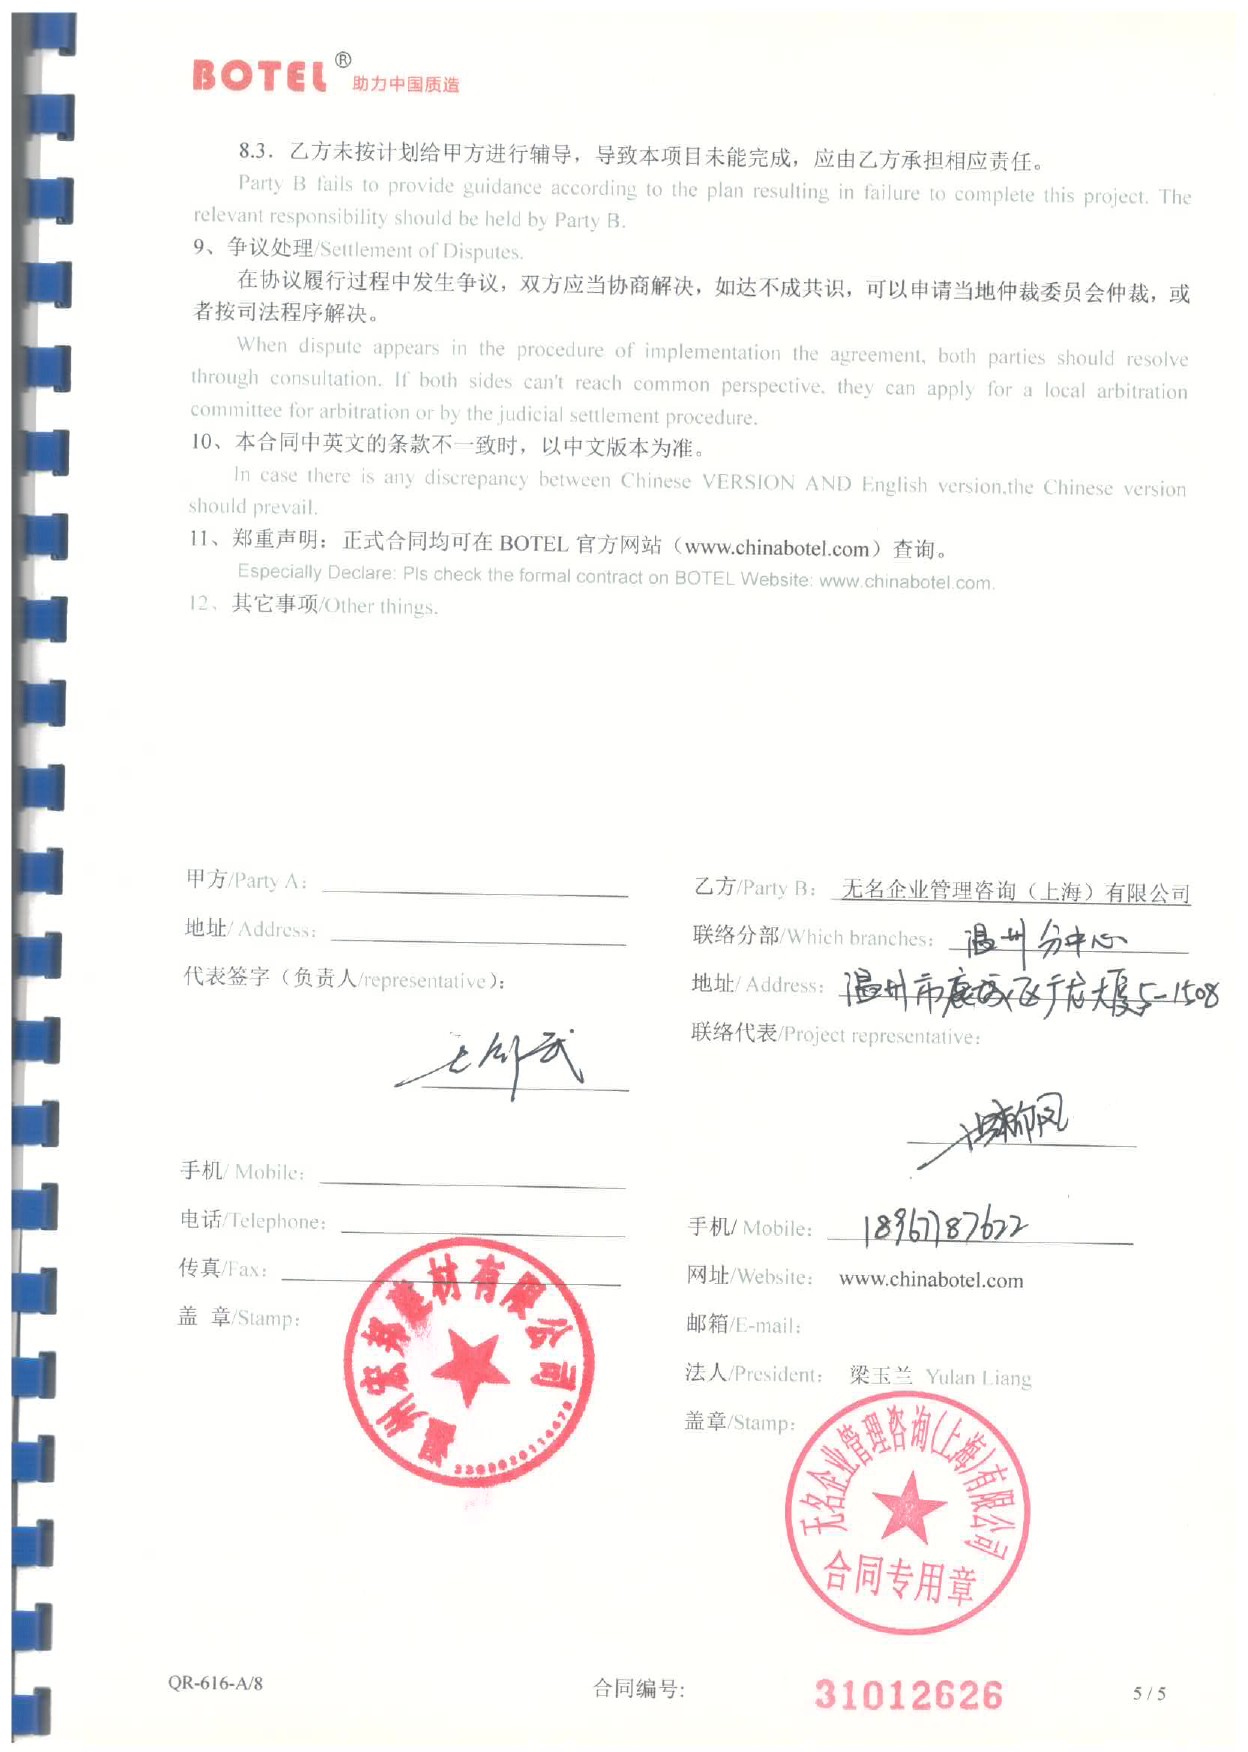 BOTEL® 助力中国质造
8.3．乙方未按计划给甲方进行辅导，导致本项目未能完成，应由乙方承担相应责任。
Party B fails to provide guidance according to the plan resulting in failure to complete this project. The
relevant responsibility should be held by Party B.
9、争议处理/Settlement of Disputes.
在协议履行过程中发生争议，双方应当协商解决，如达不成共识，可以申请当地仲裁委员会仲裁，或
者按司法程序解决。
When dispute appears in the procedure of implementation the agreement, both parties should resolve
through consultation. If both sides can't reach common perspective, they can apply for a local arbitration
committee for arbitration or by the judicial settlement procedure.
10、本合同中英文的条款不一致时，以中文版本为准。
In case there is any discrepancy between Chinese VERSION AND English version,the Chinese version
should prevail.
11、郑重声明：正式合同均可在 BOTEL 官方网站（www.chinabotel.com）查询。
Especially Declare: Pls check the formal contract on BOTEL Website: www.chinabotel.com.
12、其它事项/Other things.
甲方/Party A：
地址/ Address：
代表签字（负责人/representative）：
手机/ Mobile：
电话/Telephone：
传真/Fax：
盖 章/Stamp：
建材有限公司
乙方/Party B： 无名企业管理咨询（上海）有限公司
联络分部/Which branches： 温州分中心
地址/ Address： 温州市 大厦5-1508
联络代表/Project representative：
手机/ Mobile： 18967787622
网址/Website： www.chinabotel.com
邮箱/E-mail：
法人/President： 梁玉兰 Yulan Liang
盖章/Stamp：
无名企业管理咨询(上海)有限公司
合同专用章
QR-616-A/8 合同编号: 31012626 5 / 5